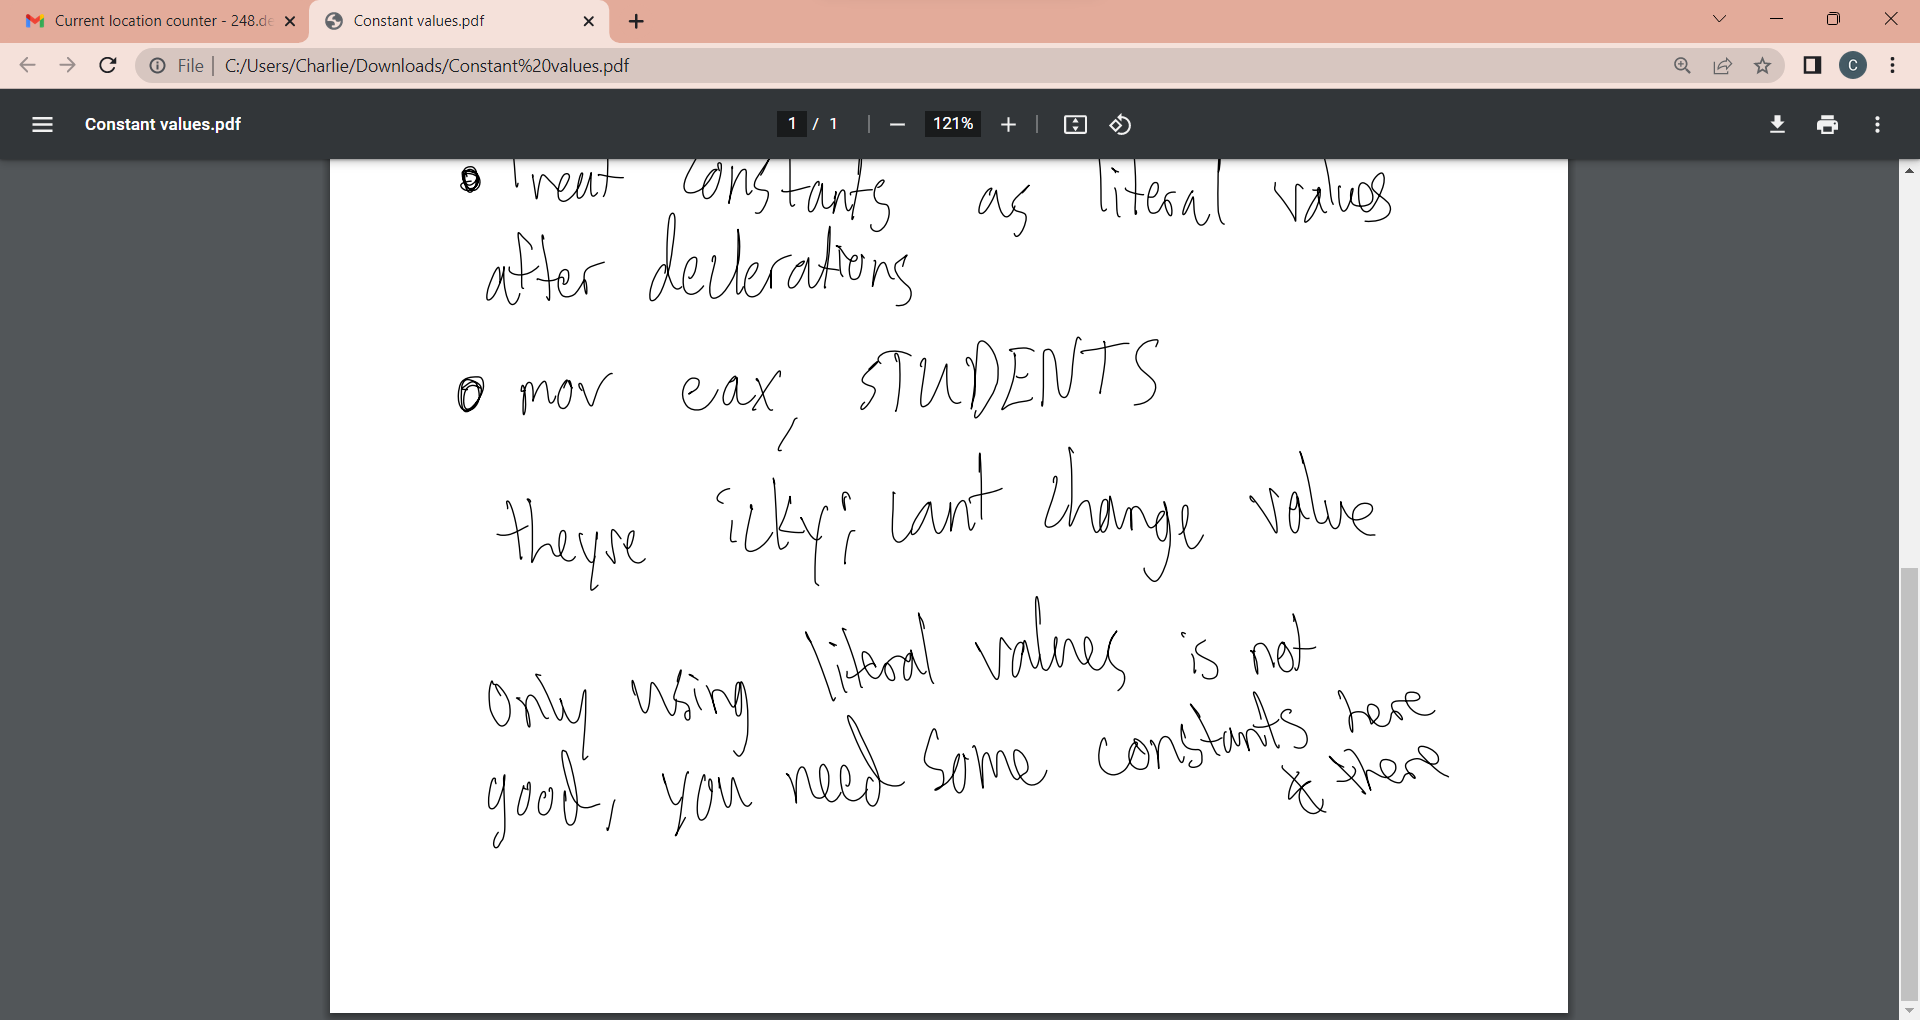 Current location counter - 248.de
Constant values.pdf
File | C:/Users/Charlie/Downloads/Constant%20values.pdf
C
Constant values.pdf
1 / 1
121%
• Treat constants as literal values
after declerations
• mov eax, STUDENTS
theyre icky; cant change value
Only using literal values is not
good, you need some constants here
& there